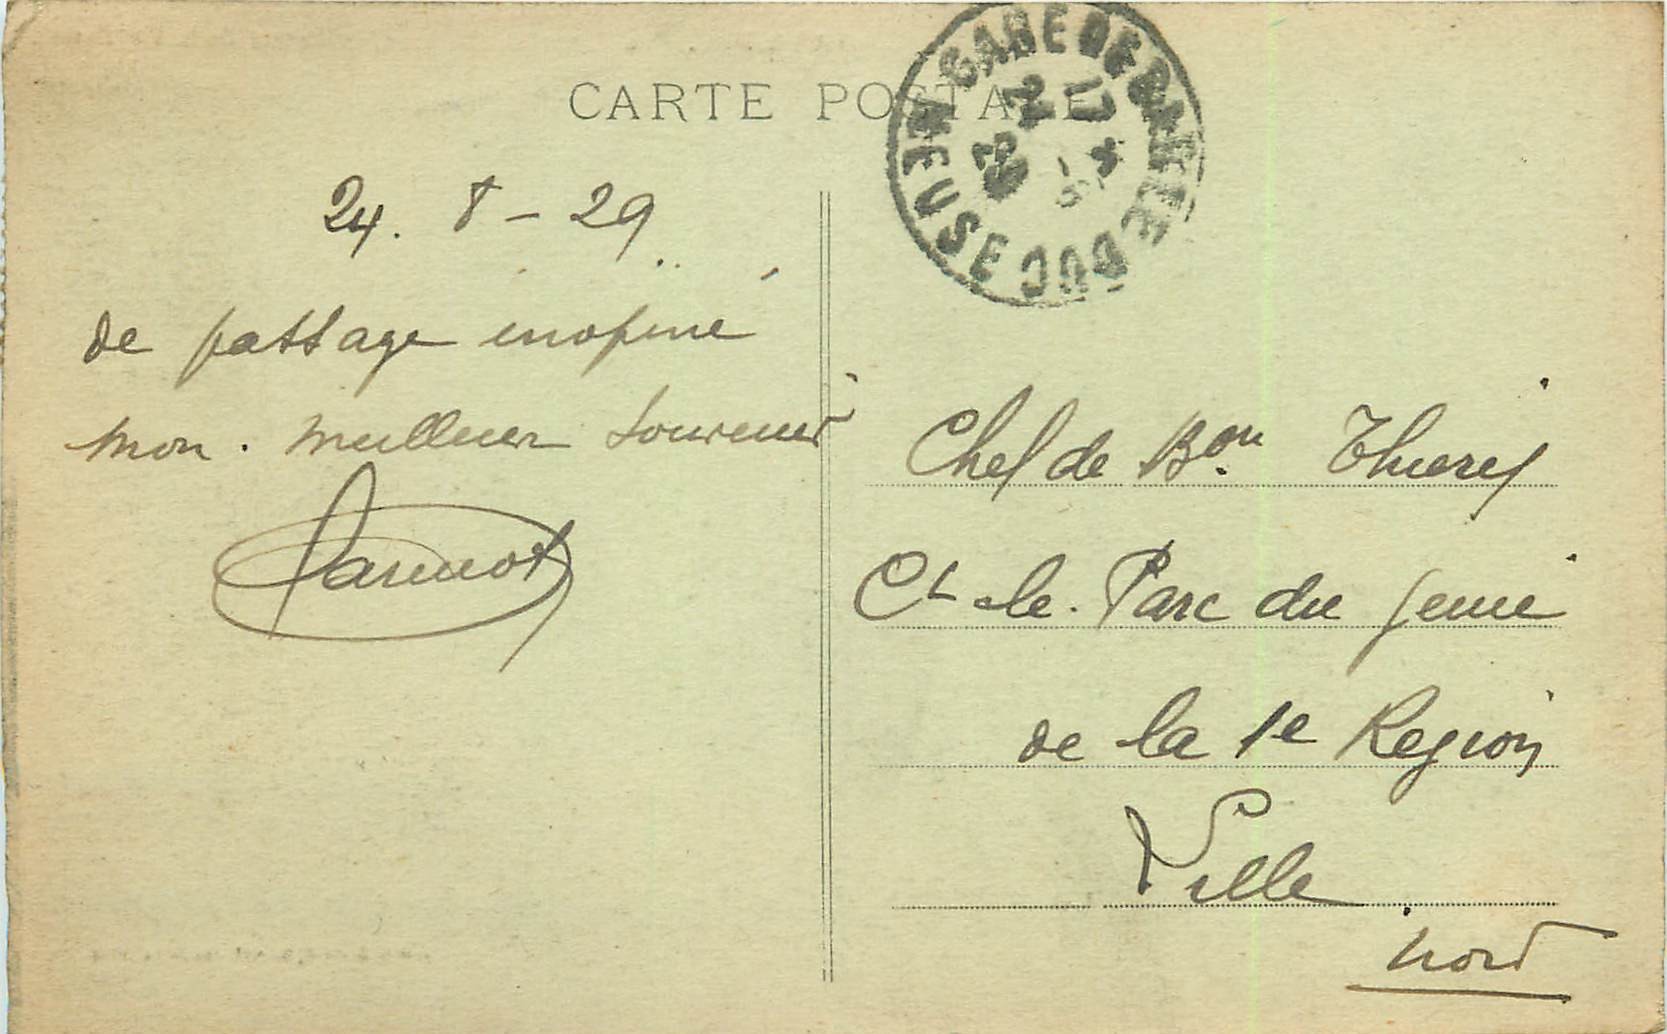 CARTE POSTALE
GARE DE BAR-LE-DUC
MEUSE
24. 8 - 29
de passage inopiné
mon meilleur souvenir
Chef de Bon Thierij
Ct le Parc du Génie
de la 1e Region
Lille
Nord